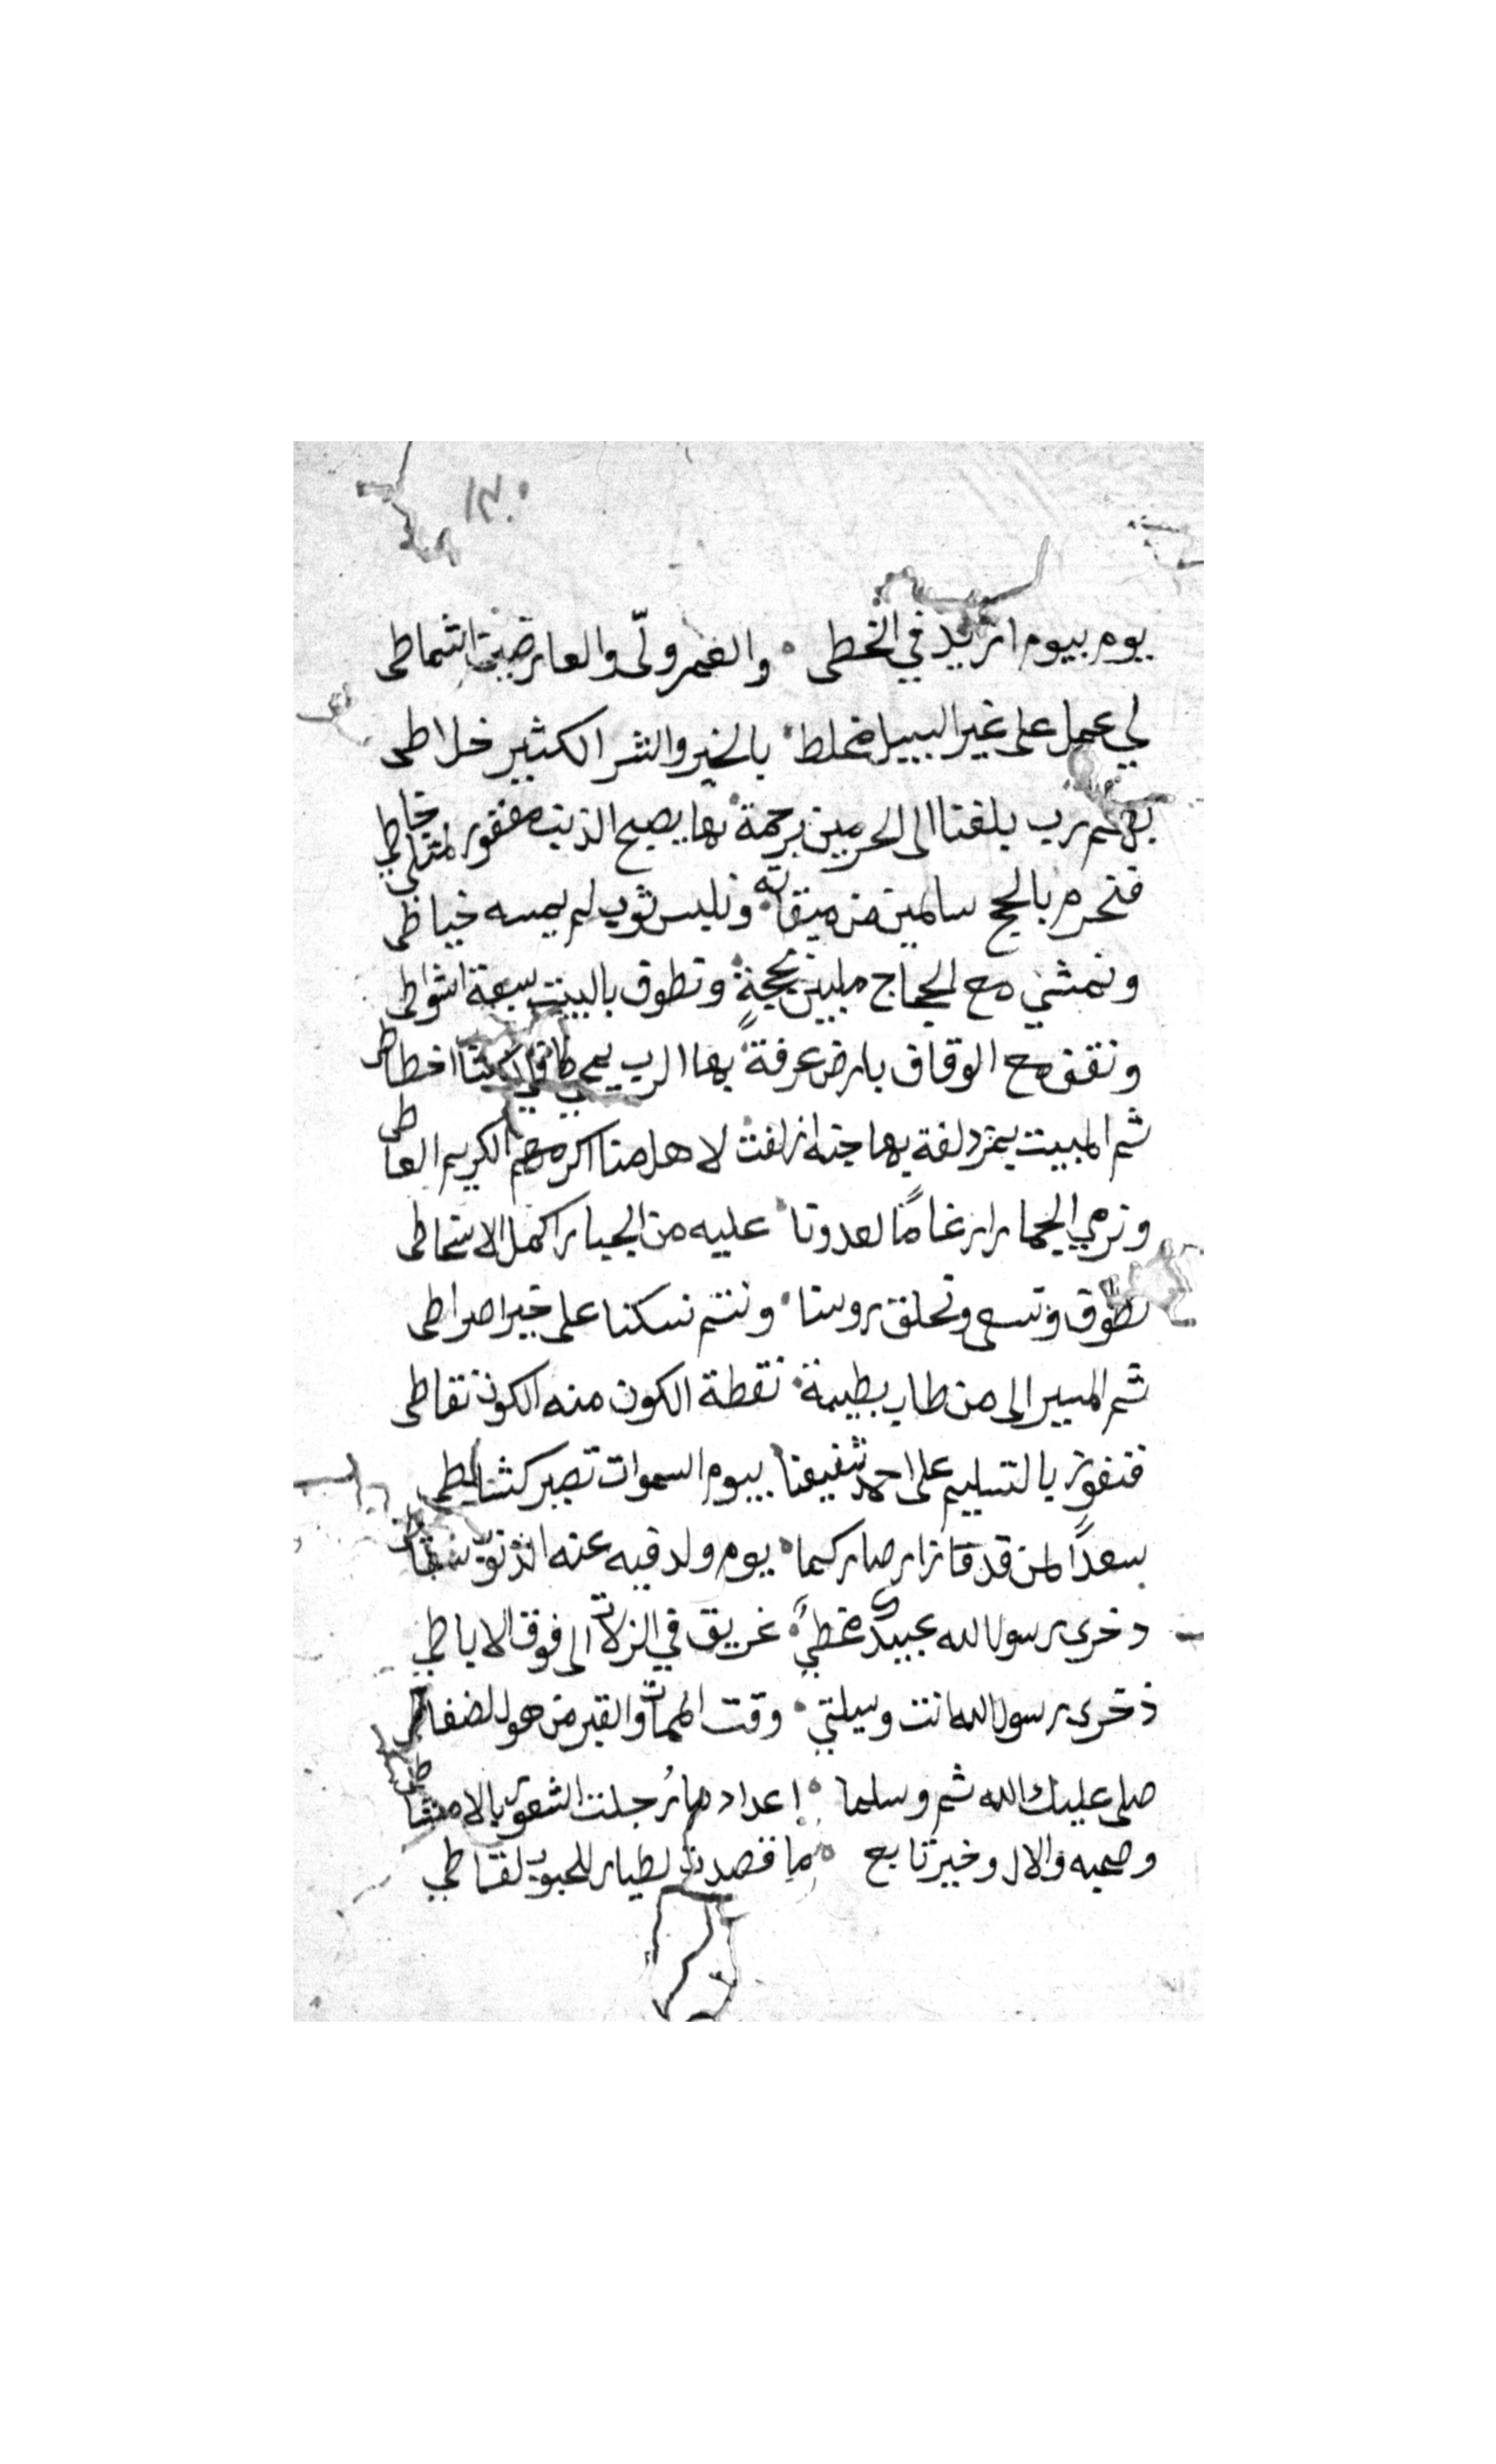 ١٣٠
يوم بيوم ازيد في الخطى والعمر ولّى والعارضين اشماطى
لي عمل على غير السبيل مخلط بالخير والشر الكثير خلاطى
بهم رب يلقنا الى الحرمين برحمة بها يصبح الذنب مغفور
فنحرم بالحج سالمين من ميقاته ونلبس ثوب لم يمسه خياطى
ونمشي مع الحجاج ملبين بحجةٍ ونطوف بالبيت سبعة اشواطى
ونقف مع الوقاف بارض عرفةً بها الرب اخطا
ثم المبيت بمزدلفة بها جنه ازلفت لاهل منا اكرمهم الكريم العاطى
ونرمي الجمار ارغامًا لعدونا عليه من الجبار اكمل الاسخاطى
نطوف ونسعى ونحلق روسنا ونتم نسكنا على خير اصراطى
ثم المسير الى من طاب بطيبة نقطة الكون منه الكون نقاطى
فنفوز بالتسليم على احمد شفيعنا بيوم السموات تصير كشاطى
سعدًا لمن قد فاز ازار صار كما يوم ولد فيه عنه الذنوب
ذخري رسول الله عبيدك مخطيً غريق في الزلات الى فوق الاباطي
ذخري رسول الله انت وسيلتي وقت الممات والقبر من هول
صلى عليك الله ثم وسلما اعداد ما رُجلت الشعور بالامشاطى
وصحبه والال وخير تابع ما قصدت لطيار للحبوب لقاطي